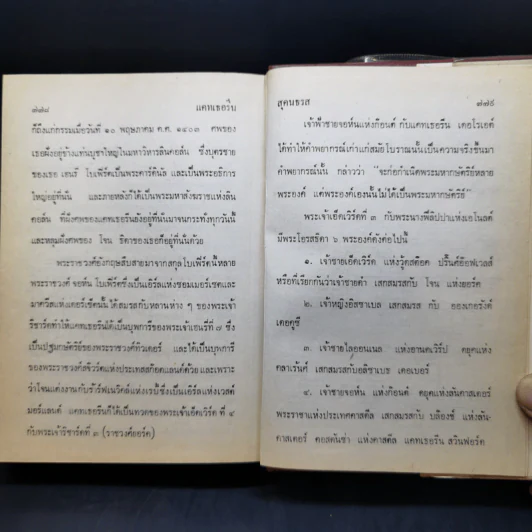 ๗๗๘ แคทเธอรีน
ก็ถึงแก่กรรมเมื่อวันที่ ๑๐ พฤษภาคม ค.ศ. ๑๔๐๓ ศพของ
เธอฝังอยู่ข้างแท่นบูชาใหญ่ในมหาวิหารลินคอล์น ซึ่งบุตรชาย
ของเธอ เฮนรี โบเฟิร์ตเป็นพระคาร์ดินัล และเป็นพระอธิการ
ใหญ่อยู่ที่นั่น และภายหลังก็ได้เป็นพระมหาสังฆราชแห่งลิน
คอล์น ที่ฝังศพของแคทเธอรีนยังอยู่ที่นั่นมาจนกระทั่งทุกวันนี้
และหลุมฝังศพของ โจน ธิดาของเธอก็อยู่ที่นั่นด้วย
พระราชวงศ์อังกฤษสืบสายมาจากสกุลโบเฟิร์ตนี้หลาย
พระราชวงศ์ จอห์น โบเฟิร์ตซึ่งเป็นเอิร์ลแห่งซอมเมอร์เซตและ
มาควิสแห่งดอร์เซ็ตนั้น ได้สมรสกับหลานห่าง ๆ ของพระเจ้า
ริชาร์ดทำให้แคทเธอรีนได้เป็นบุพการีของพระเจ้าเฮนรี่ที่ ๗ ซึ่ง
เป็นปฐมกษัตริย์ของพระราชวงศ์ทิวเดอร์ และได้เป็นบุพการี
ของพระราชวงศ์สจ๊วตแห่งประเทศสก๊อตแลนด์ด้วย และเพราะ
ว่าโจนแต่งงานกับราล์ฟเนวิลล์แห่งเรบี้ซึ่งเป็นเอิร์ลแห่งเวสต์
มอร์แลนด์ แคทเธอรีนก็ได้เป็นทวดของพระเจ้าเอ็ดเวิร์ด ที่ ๔
กับพระเจ้าริชาร์ดที่ ๓ (ราชวงศ์ยอร์ค)
สุคนธรส ๗๗๙
เจ้าฟ้าชายจอห์นแห่งก๊อนต์ กับแคทเธอรีน เดอโรเอต์
ได้ทำให้คำพยากรณ์เก่าแก่สมัยโบราณนั้นเป็นความจริงขึ้นมา
คำพยากรณ์นั้น กล่าวว่า "จะก่อกำเนิดพระมหากษัตริย์หลาย
พระองค์ แต่พระองค์เองนั้นไม่ได้เป็นพระมหากษัตริย์"
พระเจ้าเอ็ดเวิร์ดที่ ๓ กับพระนางฟิลิปปาแห่งเฮโนลต์
มีพระโอรสธิดา ๖ พระองค์ดังต่อไปนี้
๑. เจ้าชายเอ็ดเวิร์ด แห่งวู้ดสต๊อค ปริ๊นศ์อ๊อฟเวลส์
หรือที่เรียกกันว่าเจ้าชายดำ เสกสมรสกับ โจน แห่งเฮอร์ด
๒. เจ้าหญิงอิสซาเบล เสกสมรส กับ
เดอคูซี
๓. เจ้าชายไลออนเนล แห่งอานตเวิร์ป ดยุคแห่ง
คลาเร้นศ์ เสกสมรสกับอลิซาเบธ เดอเบอร์
๔. เจ้าชายจอห์น แห่งก๊อนต์ ดยุคแห่งลังคาสเตอร์
พระราชาแห่งประเทศคาสติล เสกสมรสกับ บล๊องช์ แห่งลัน-
คาสเตอร์ คอสตันซ่า แห่งคาสติล แคทเธอรีน สวินฟอร์ด